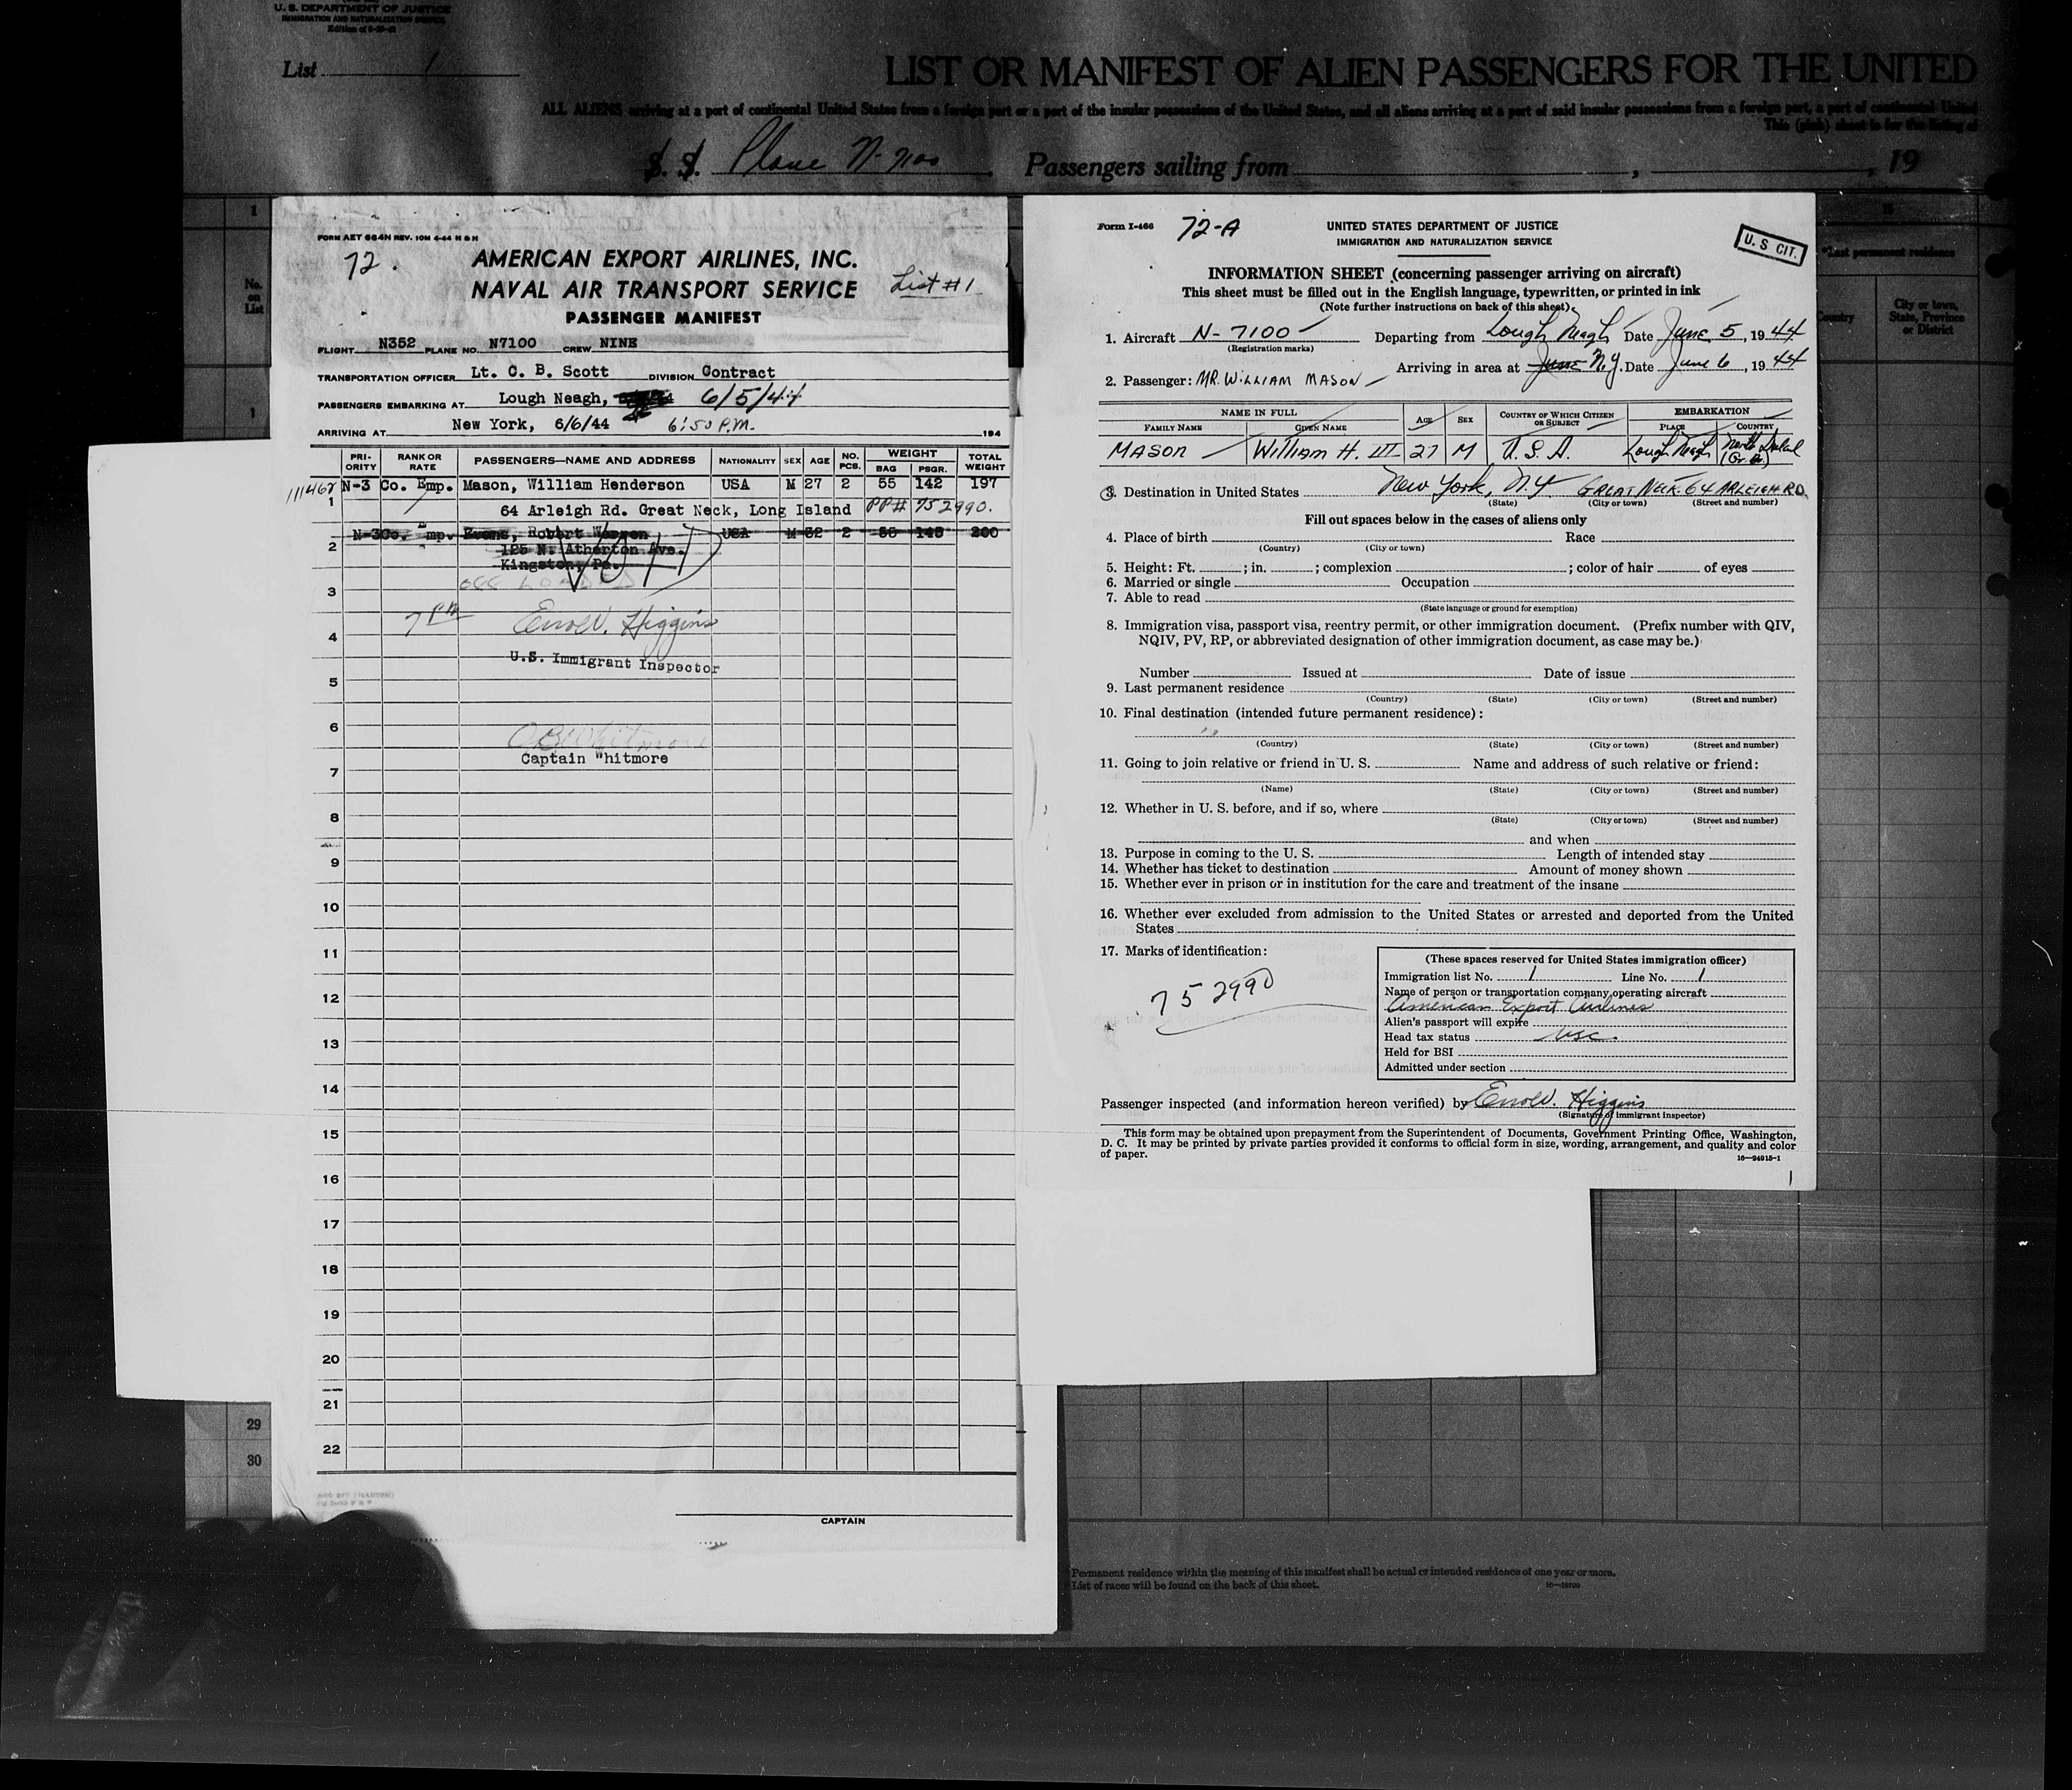 U. S. DEPARTMENT OF JUSTICE
IMMIGRATION AND NATURALIZATION SERVICE
List 1
LIST OR MANIFEST OF ALIEN PASSENGERS FOR THE UNITED
ALL ALIENS arriving at a port of continental United States from a foreign port or a port of the insular possessions of the United States, and all aliens arriving at a port of said insular possessions from a foreign port, a port of continental United
This (pink) sheet is for the listing of
S. S. Plane N-7100 Passengers sailing from , 19
No. on List
1
1
29
30
FORM AET 664N REV. 10M 4-44 H & H
72.
AMERICAN EXPORT AIRLINES, INC.
NAVAL AIR TRANSPORT SERVICE
List #1
PASSENGER MANIFEST
FLIGHT N352 PLANE NO. N7100 CREW NINE
TRANSPORTATION OFFICER Lt. C. B. Scott DIVISION Contract
PASSENGERS EMBARKING AT Lough Neagh, 6/5/44
ARRIVING AT New York, 6/6/44 6:50 P.M. 194
PRI-ORITY RANK OR RATE PASSENGERS—NAME AND ADDRESS NATIONALITY SEX AGE NO. PCS. WEIGHT BAG PSGR. TOTAL WEIGHT
111467 N-3 Co. Emp. Mason, William Henderson USA M 27 2 55 142 197
1 64 Arleigh Rd. Great Neck, Long Island PP# 752990.
N-3 Co. Emp. Evans, Robert Warren USA M 32 2 55 145 200
2 125 N. Atherton Ave.
Kingston, Pa.
3
7 PM Errol V. Higgins
4
U.S. Immigrant Inspector
5
6
O B Whitmore
Captain Whitmore
7
8
9
10
11
12
13
14
15
16
17
18
19
20
21
22
CAPTAIN
Form I-466 72-A
UNITED STATES DEPARTMENT OF JUSTICE
IMMIGRATION AND NATURALIZATION SERVICE
U. S CIT.
INFORMATION SHEET (concerning passenger arriving on aircraft)
This sheet must be filled out in the English language, typewritten, or printed in ink
(Note further instructions on back of this sheet)
1. Aircraft N-7100 Departing from Lough Neagh Date June 5, 1944
(Registration marks)
Arriving in area at June N.Y. Date June 6, 1944
2. Passenger: MR. WILLIAM MASON
NAME IN FULL AGE SEX COUNTRY OF WHICH CITIZEN OR SUBJECT EMBARKATION
FAMILY NAME GIVEN NAME PLACE COUNTRY
MASON William H. III 27 M U.S.A. Lough Neagh North Ireland (Gr. B.)
3. Destination in United States New York, N.Y. GREAT NECK 64 ARLEIGH RD.
(State) (City or town) (Street and number)
Fill out spaces below in the cases of aliens only
4. Place of birth Race
(Country) (City or town)
5. Height: Ft. ; in. ; complexion ; color of hair of eyes
6. Married or single Occupation
7. Able to read
(State language or ground for exemption)
8. Immigration visa, passport visa, reentry permit, or other immigration document. (Prefix number with QIV,
NQIV, PV, RP, or abbreviated designation of other immigration document, as case may be.)
Number Issued at Date of issue
9. Last permanent residence
(Country) (State) (City or town) (Street and number)
10. Final destination (intended future permanent residence):
(Country) (State) (City or town) (Street and number)
11. Going to join relative or friend in U. S. Name and address of such relative or friend:
(Name) (State) (City or town) (Street and number)
12. Whether in U. S. before, and if so, where
(State) (City or town) (Street and number)
and when
13. Purpose in coming to the U. S. Length of intended stay
14. Whether has ticket to destination Amount of money shown
15. Whether ever in prison or in institution for the care and treatment of the insane
16. Whether ever excluded from admission to the United States or arrested and deported from the United
States
17. Marks of identification:
752990
(These spaces reserved for United States immigration officer)
Immigration list No. 1 Line No. 1
Name of person or transportation company operating aircraft
American Export Airlines
Alien's passport will expire
Head tax status USC.
Held for BSI
Admitted under section
Passenger inspected (and information hereon verified) by Errol V. Higgins
(Signature of immigrant inspector)
This form may be obtained upon prepayment from the Superintendent of Documents, Government Printing Office, Washington,
D. C. It may be printed by private parties provided it conforms to official form in size, wording, arrangement, and quality and color
of paper.
16—24915-1
1
*Last permanent residence
Country City or town, State, Province or District
Permanent residence within the meaning of this manifest shall be actual or intended residence of one year or more.
List of races will be found on the back of this sheet.